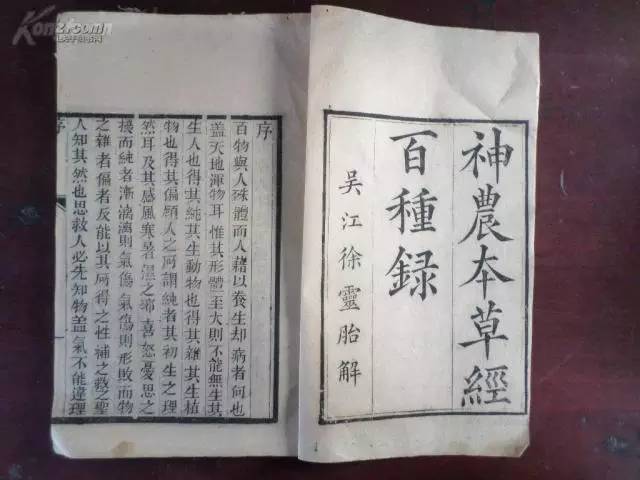 神農本草經
百種録
吳江徐靈胎解
序
百物與人殊體而人藉以養生却病者何也
蓋天地渾物耳惟其形體至大則不能無生其
生人也得其純其生動物也得其雜其生植
物也得其偏顧人之所謂純者其初生之理
然耳及其感風寒暑濕之邪喜怒憂思之
擾而純者漸漓漓則氣傷氣傷則形敗而物
之雜者偏者反能以其所得之性補之救之聖
人知其然也思救人必先知物蓋氣不能違理
序